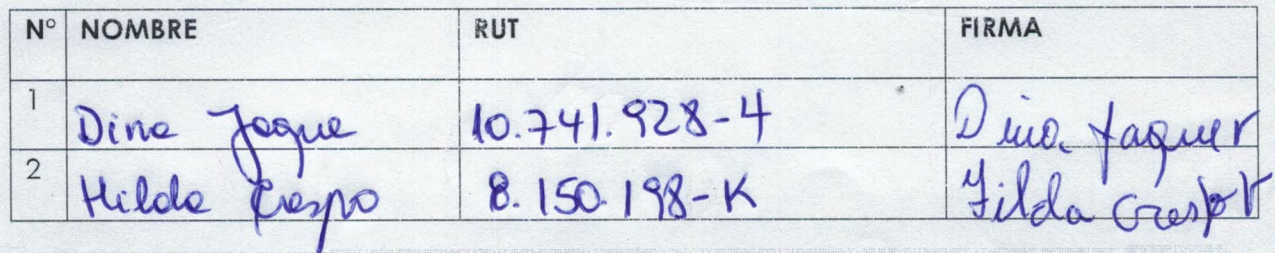 N° NOMBRE RUT FIRMA
1 Dina Jaque 10.741.928-4 Dina Jaque
2 Hilda Crespo 8.150.198-K Hilda Crespo